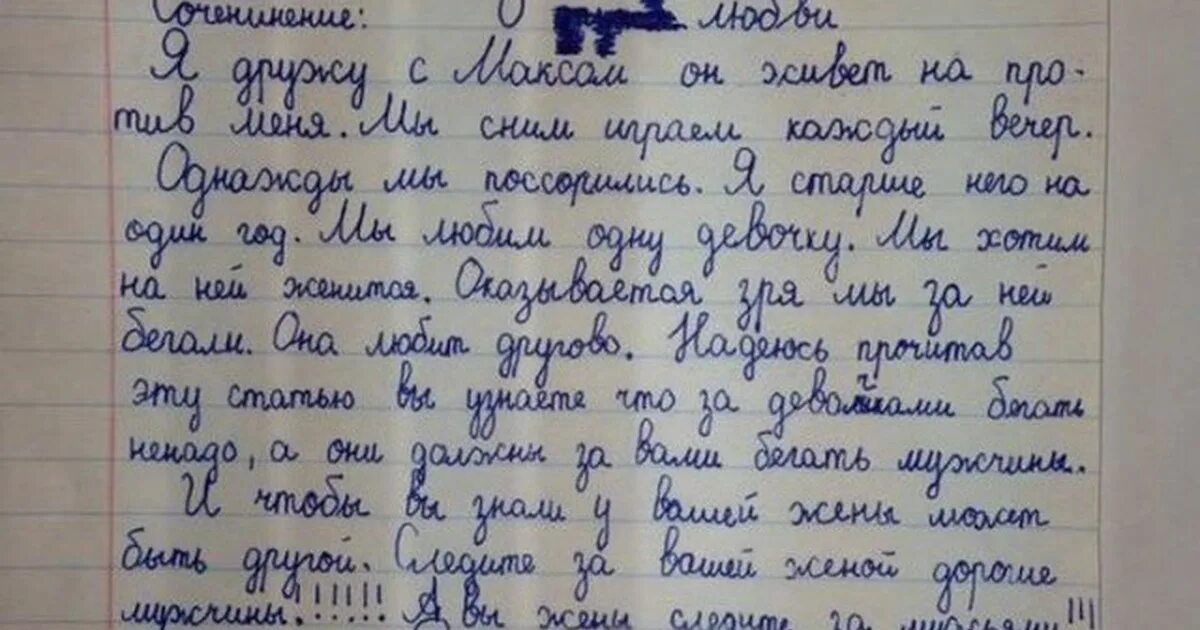 Соченинение: О любви
Я дружу с Максам он живет на про-
тив меня. Мы сним играем каждый вечер.
Однажды мы поссорились. Я старше него на
один год. Мы любим одну девочку. Мы хотим
на ней женится. Оказывается зря мы за ней
бегали. Она любит другово. Надеюсь прочитав
эту статью вы узнаете что за девочками бегать
ненадо, а они должны за вами бегать мужчины.
И чтобы вы знали у вашей жены может
быть другой. Следите за вашей женой дорогие
мужчины!!!!!! А вы жены следите за мужьями!!!